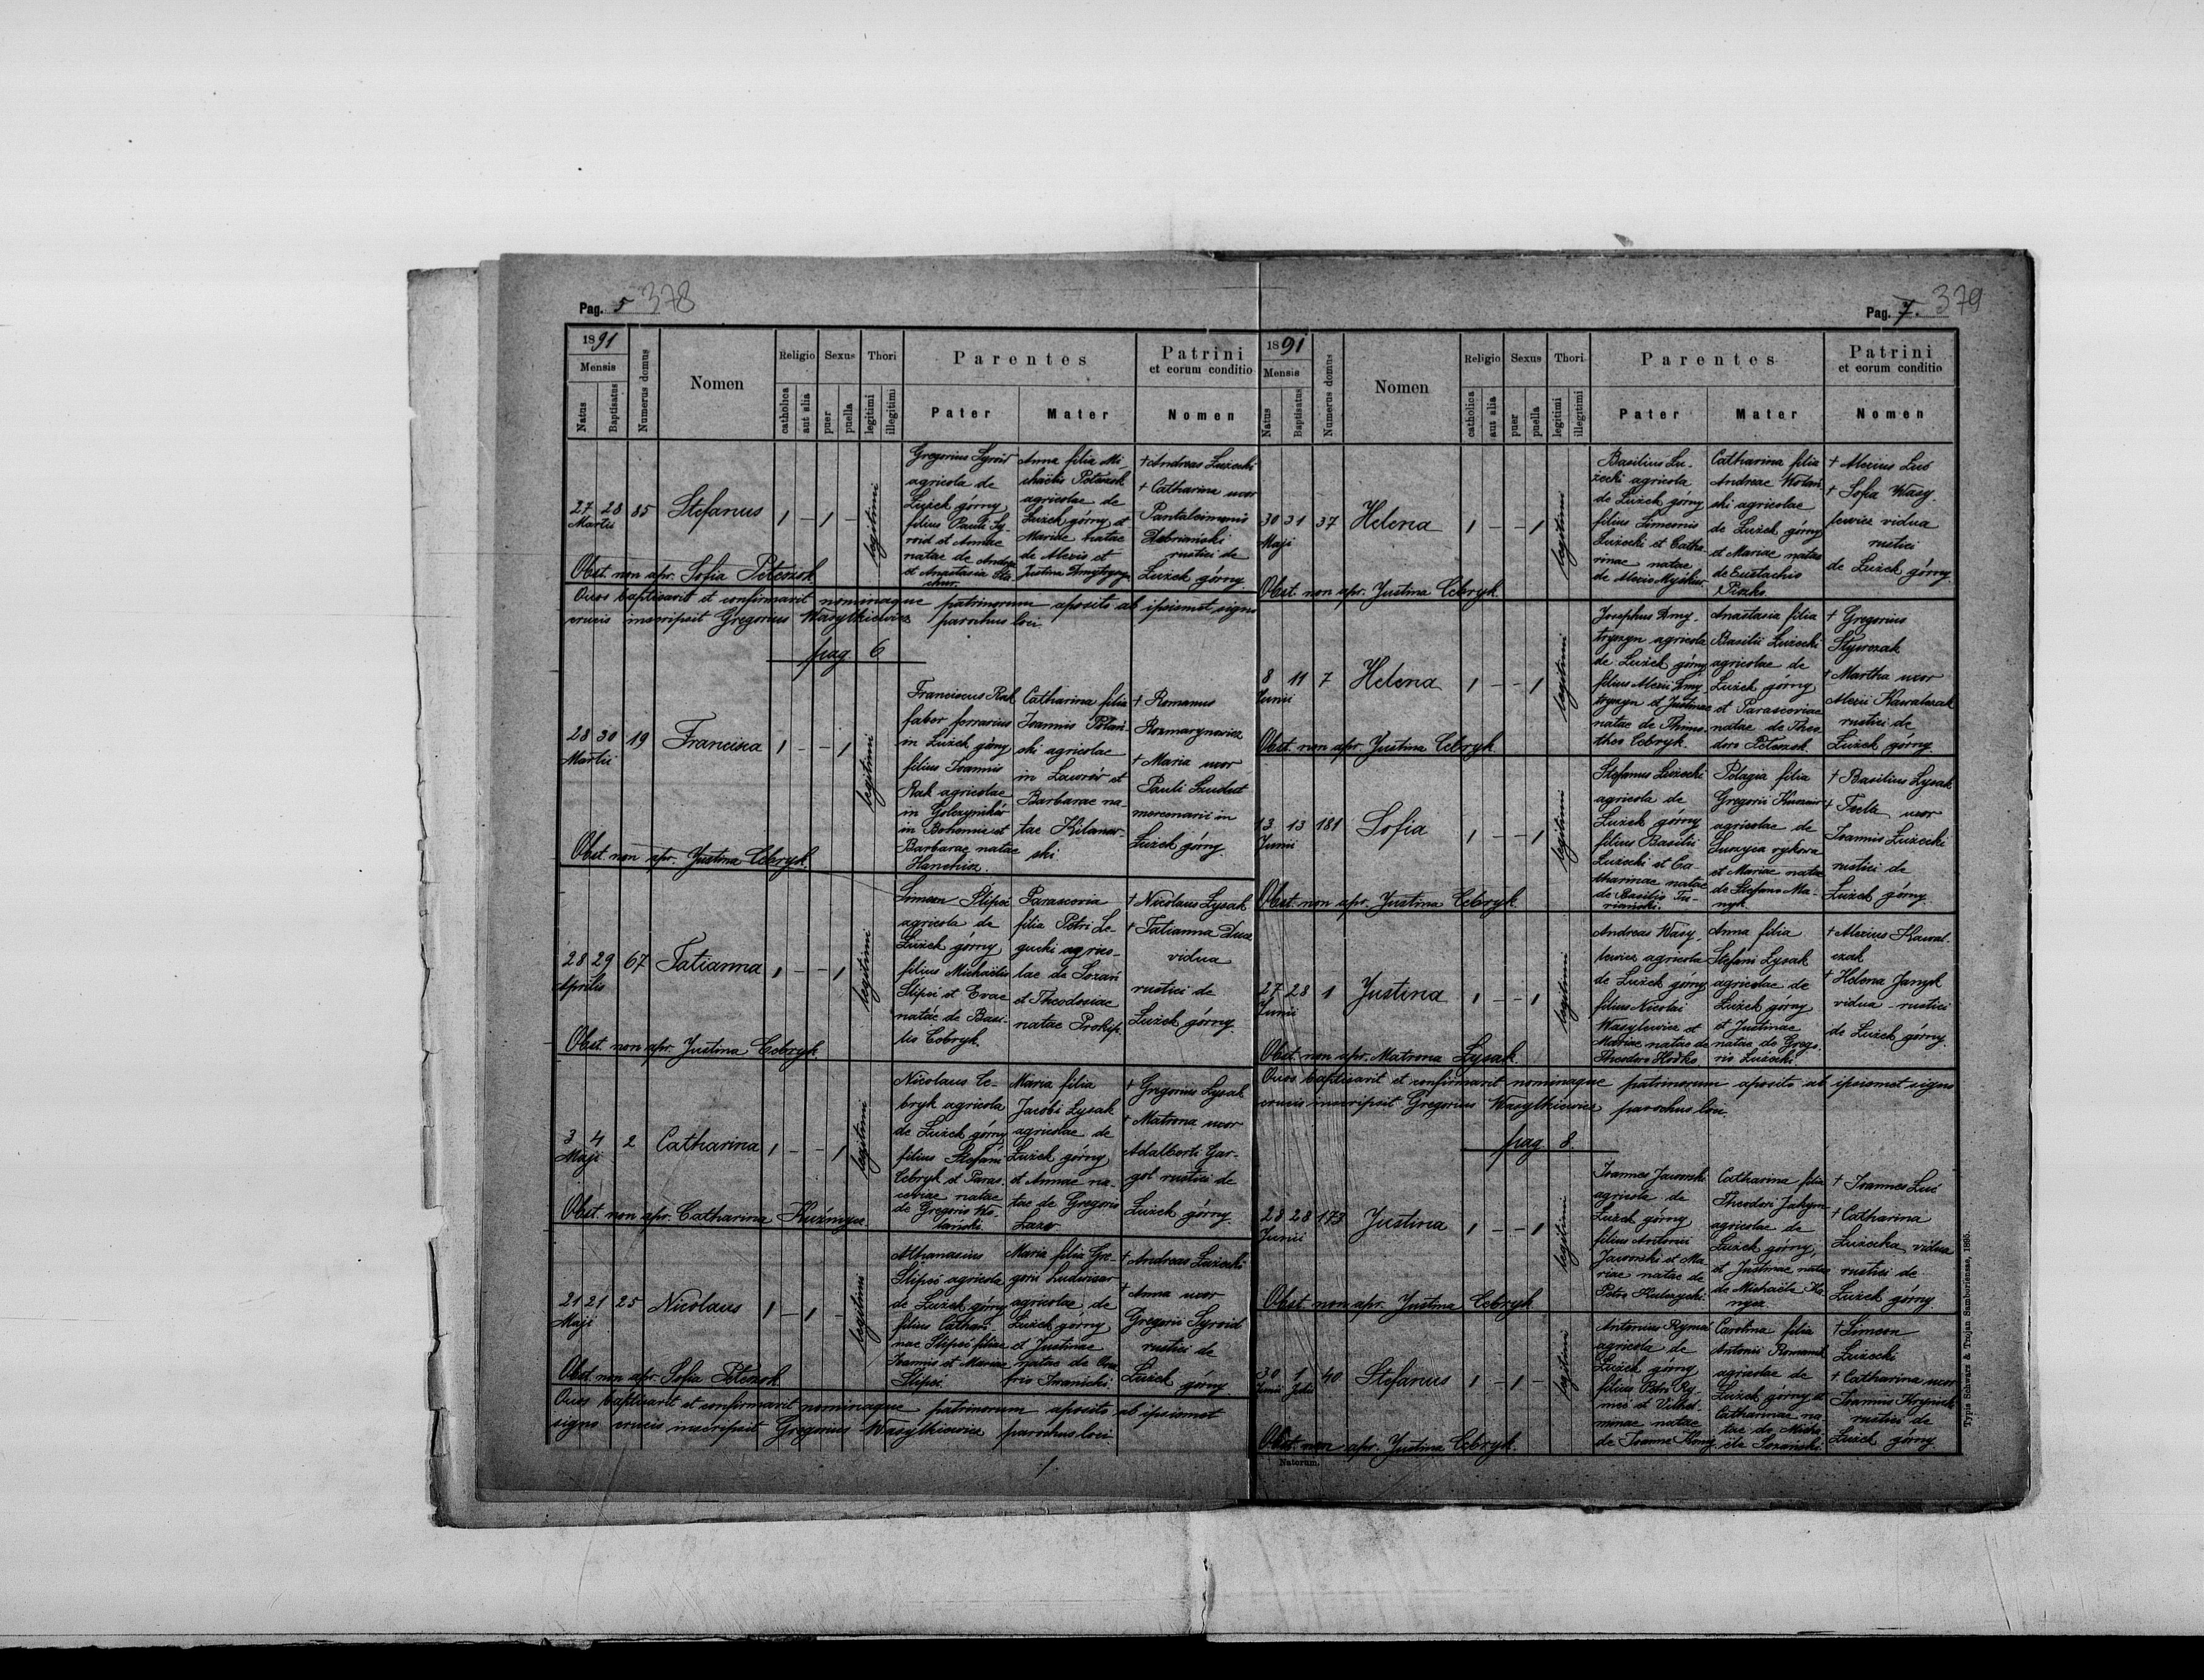 Pag. 5 378
1891
Mensis
Natus
Baptisatus
Numerus domus
Nomen
Religio
catholica
aut alia
Sexus
puer
puella
Thori
legitimi
illegitimi
Parentes
Pater
Mater
Patrini
et eorum conditio
Nomen
27 28 85 Stefanus 1 - 1 -
Martii
legitimi
Gregorius Syroid
agricola de
Łużek górny
filius Pauli Sy-
roid et Annae
natae de
et Anastasia
Anna filia Mi-
chaëlis Peteszok
agricolae de
Łużek górny et
Mariae natae
de Alexio et
Justina Dmytryszyn
† Andreas Łużecki
† Catharina uxor
Pantaleimonis
Debriański
rustici de
Łużek górny
Obst. non apr. Sofia Peteszok
Quos baptisavit et confirmavit nominaque patrinorum aposito ab ipsismet signo
crucis inscripsit Gregorius Wasylkiewicz parochus loci
pag 6
28 30 19 Francisca 1 - - 1
Martii
legitimi
Franciscus Rak
faber ferrarius
in Łużek górny
filius Joannis
Rak agricolae
in
in Bohemia et
Barbarae natae
Catharina filia
Joannis Polań-
ski agricolae
in Lawrów et
Barbarae na-
tae Kilanow-
ski
† Romanus
Rozmarynowicz
† Maria uxor
Pauli
mercenarii in
Łużek górny.
Obst. non apr. Justina Cebryk.
28 29 67 Tatianna 1 - - 1
Aprilis
legitimi
Simeon Slipeć
agricola de
Łużek górny
filius Michaëlis
Slipeć et Evae
natae de Basi-
lio Cebryk.
Parascevia
filia Petri Le-
gucki agrico-
lae de Sozań
et Theodosiae
natae Prokip.
† Nicolaus Łysak
† Tatianna
vidua
rustici de
Łużek górny.
Obst. non apr. Justina Cebryk.
3 4 2 Catharina 1 - - 1
Maji
legitimi
Nicolaus Ce-
bryk agricola
de Łużek górny
filius Stefani
Cebryk et Paras-
ceviae natae
de Gregorio Wo-
lański
Maria filia
Jacobi Łysak
agricolae de
Łużek górny
et Annae na-
tae de Gregorio
Lazor
† Grigorius Łysak
† Matrona uxor
Adalberti Gar-
gol rustici de
Łużek górny
Obst. non apr. Catharina Kuźmycz
21 21 25 Nicolaus 1 - 1 -
Maji
legitimi
Athanasius
Slipeć agricola
de Łużek górny
filius Cathari-
nae Slipeć filiae
Joannis et Mariae
Slipeć.
Maria filia Gre-
gorii Ludwisar
agricolae de
Łużek górny
et Justinae
natae de Onu-
frio Iwanicki
† Andreas Łużecki
† Anna uxor
Gregorii Syroid
rustici de
Łużek górny
Obst. non apr. Sofia Peteszok
Quos baptisavit et confirmavit nominaque patrinorum aposito ab ipsismet
signo crucis inscripsit Gregorius Wasylkiewicz parochus loci
Pag. 7. 379
1891
Mensis
Natus
Baptisatus
Numerus domus
Nomen
Religio
catholica
aut alia
Sexus
puer
puella
Thori
legitimi
illegitimi
Parentes
Pater
Mater
Patrini
et eorum conditio
Nomen
30 31 37 Helena 1 - - 1
Maji
legitimi
Basilius Łu-
żecki agricola
de Łużek górny
filius Simeonis
Łużecki et Catha-
rinae natae
de Alexio
Catharina filia
Andreae Wolań-
ski agricolae
de Łużek górny
et Mariae natae
de Eustachio
Piszko.
† Alexius Luś
† Sofia Wasy-
lewicz vidua
rustici
de Łużek górny.
Obst. non apr. Justina Cebryk.
8 11 7 Helena 1 - - 1
Junii
legitimi
Josephus Dmy-
tryszyn agricola
de Łużek górny
filius Alexii Dmy-
tryszyn et Justinae
natae de Thimo-
theo Cebryk.
Anastasia filia
Basilii Łużecki
agricolae de
Łużek górny
et Parasceviae
natae de Theo-
doro Peteszok.
† Gregorius
† Martha uxor
Alexii Kawalczak
rustici de
Łużek górny.
Obst. non apr. Justina Cebryk
13 13 181 Sofia 1 - - 1
Junii
legitimi
Stefanus Łużecki
agricola de
Łużek górny
filius Basilii
Łużecki et Ca-
tharinae natae
de Basilio Tu-
riański.
Pelagia filia
Gregorii
agricolae de
Suszyca rykowa
et Mariae natae
de Stefano Ma-
nyk.
† Basilius Łysak
† Tecla uxor
Joannis Łużecki
rustici de
Łużek górny.
Obst. non apr. Justina Cebryk.
27 28 1 Justina 1 - - 1
Junii
legitimi
Andreas Wasy-
lewicz agricola
de Łużek górny
filius Nicolai
Wasylewicz et
Mariae natae de
Theodoro Hodko.
Anna filia
Stefani Łysak
agricolae de
Łużek górny
et Justinae
natae de Grego-
rio Łużecki
† Alexius Kawal-
czak
† Helena Janyk
vidua - rustici
de Łużek górny.
Obst. non apr. Matrona Łysak.
Quos baptisavit et confirmavit nominaque patrinorum aposito ab ipsismet signo
crucis inscripsit Gregorius Wasylkiewicz parochus loci.
pag 8.
28 28 173 Justina 1 - - 1
Junii
legitimi
Joannes Jaworski
agricola de
Łużek górny
filius Antonii
Jaworski et Ma-
riae natae de
Petro Kulczycki.
Catharina filia
Theodori
agricolae de
Łużek górny
et Justinae natae
de Michaële
† Joannes Luś
† Catharina
Łużecka vidua
rustici de
Łużek górny.
Obst. non apr. Justina Cebryk
30 1 40 Stefanus 1 - 1 -
Junii Julii
legitimi
Antonius Rymeś
agricola de
Łużek górny
filius Petri Ry-
meś et Vilhel-
minae natae
de Joanne
Carolina filia
Antonii
agricolae de
Łużek górny et
Catharinae na-
tae de Micha-
ële Sozański.
† Simeon
Łużecki
† Catharina uxor
Joannis
rustici de
Łużek górny.
Obst. non apr. Justina Cebryk.
Natorum.
Typis Schwarz & Trojan Samboriensae, 1885.